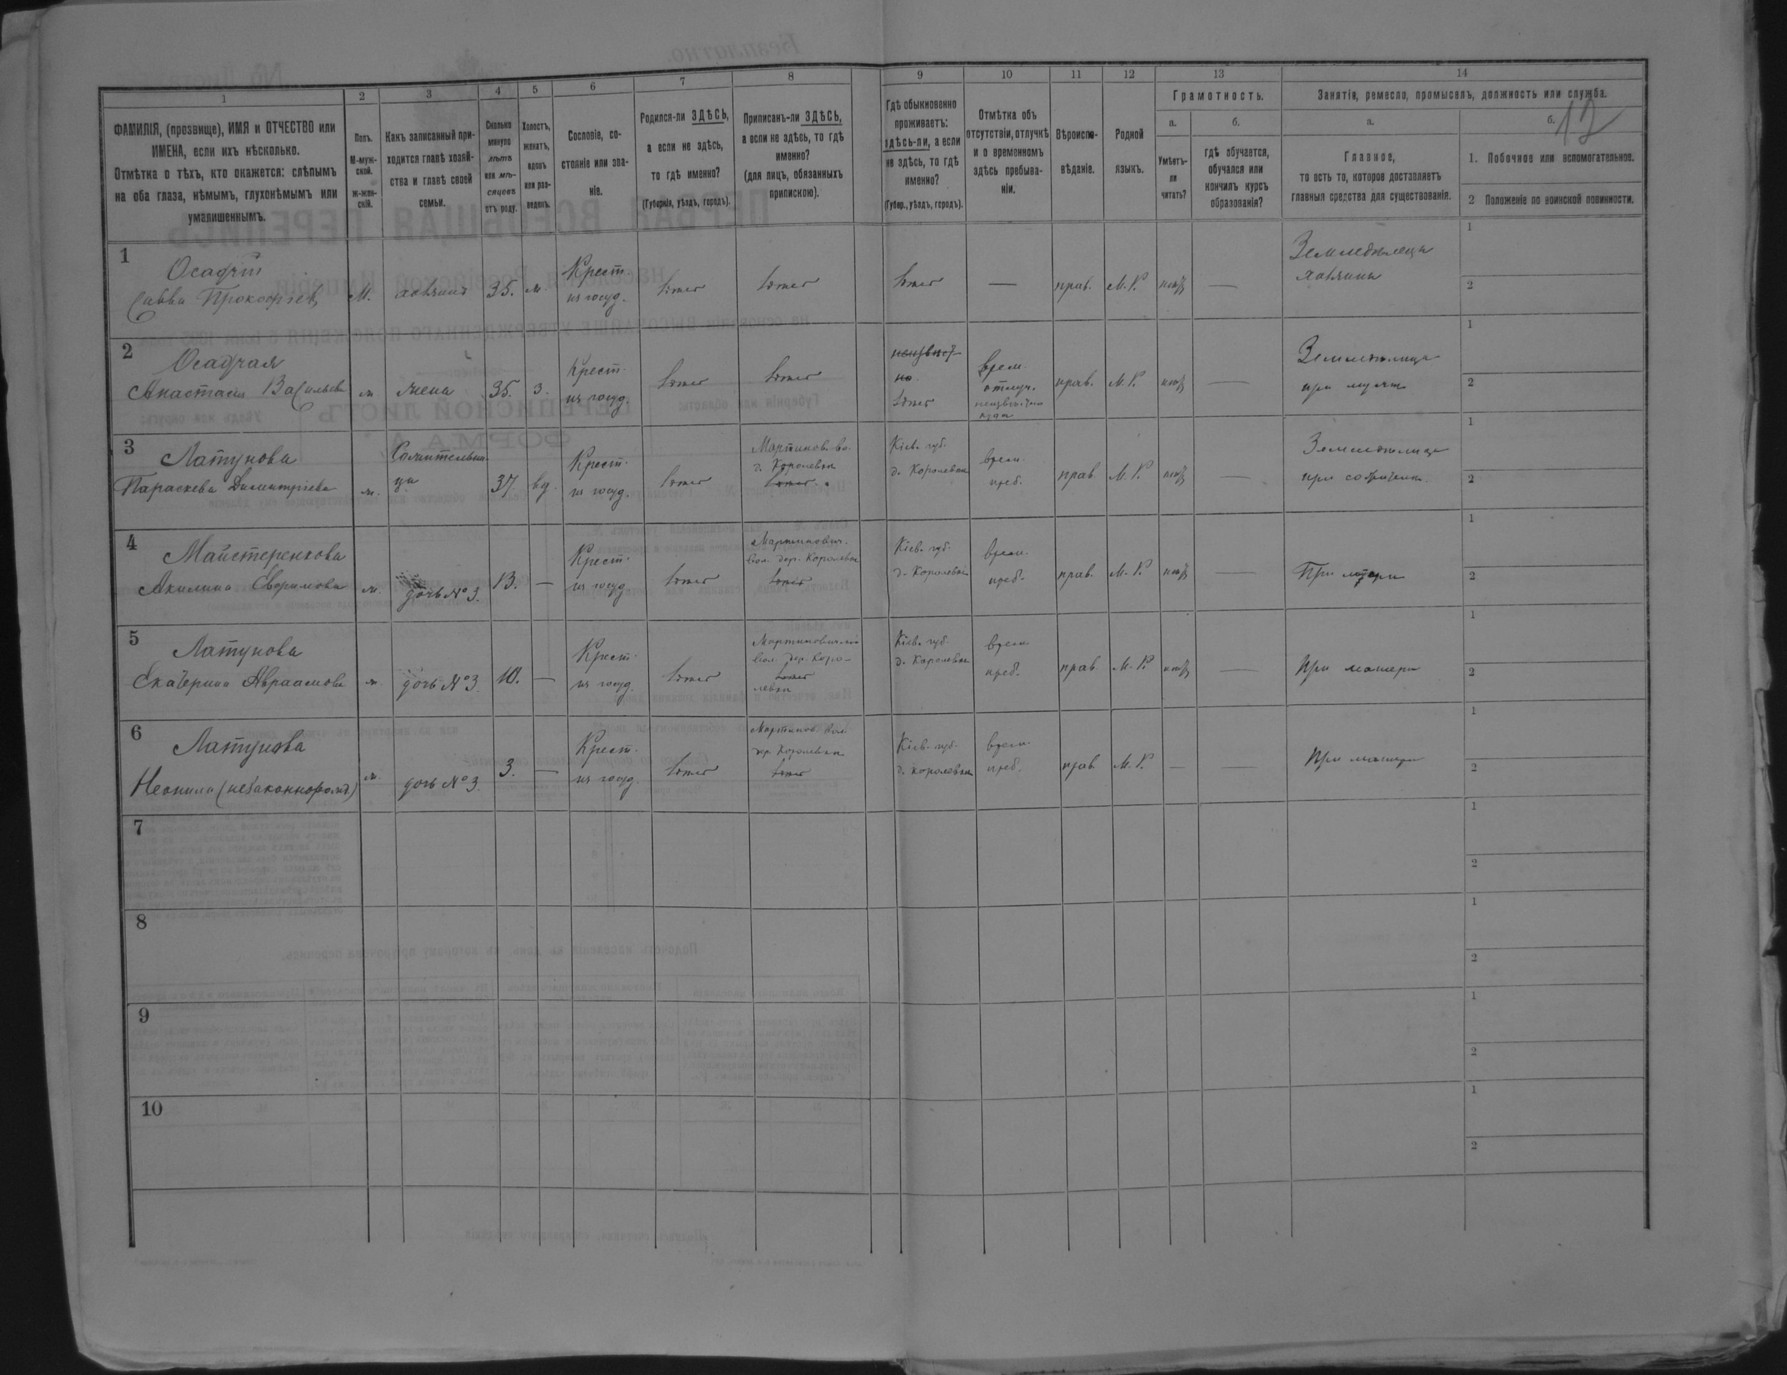 12
1
2
3
4
5
6
7
8
9
10
11
12
13
14
ФАМИЛІЯ, (прозвище), ИМЯ и ОТЧЕСТВО или
ИМЕНА, если ихъ нѣсколько.
Отмѣтка о тѣхъ, кто окажется: слѣпымъ
на оба глаза, нѣмымъ, глухонѣмымъ или
умалишеннымъ.
Полъ.
М-муж-
ской.
Ж-жен-
скій.
Какъ записанный при-
ходится главѣ хозяй-
ства и главѣ своей
семьи.
Сколько
минуло
лѣтъ
или мѣ-
сяцевъ
отъ роду.
Холостъ,
женатъ,
вдовъ
или раз-
веденъ.
Сословіе, со-
стояніе или зва-
ніе.
Родился-ли ЗДѢСЬ,
а если не здѣсь,
то гдѣ именно?
(Губернія, уѣздъ, городъ).
Приписанъ-ли ЗДѢСЬ,
а если не здѣсь, то гдѣ
именно?
(для лицъ, обязанныхъ
припискою).
Гдѣ обыкновенно
проживаетъ:
здѣсь-ли, а если
не здѣсь, то гдѣ
именно?
(Губер., уѣздъ, городъ).
Отмѣтка объ
отсутствіи, отлучкѣ
и о временномъ
здѣсь пребыва-
ніи.
Вѣроиспо-
вѣданіе.
Родной
языкъ.
Грамотность.
а.
Умѣетъ-
ли
читать?
б.
гдѣ обучается,
обучался или
кончилъ курсъ
образованія?
Занятіе, ремесло, промыселъ, должность или служба.
а.
Главное,
то есть то, которое доставляетъ
главныя средства для существованія.
б.
1. Побочное или вспомогательное.
2 Положеніе по воинской повинности.
1
Осадчій
Савва Прокофіев
М.
хозяинъ
35.
ж.
Крест.
из госуд.
здесь
здесь
здесь
—
прав.
М. Р.
нет
—
Земледелец
хозяинъ
1
2
2
Осадчая
Анастасия Васильев
ж
жена
35.
з.
Крест.
из госуд.
здесь
здесь
здесь
врем.
отлуч.
прав.
М. Р.
нет
—
при муже
1
2
3
Латунова
Параскева Димитріева
ж.
37
вд.
Крест.
из госуд.
здесь
д. Королевка
здесь
Кіев. губ.
д. Королевка
врем.
преб.
прав.
М. Р.
нет
—
1
2
4
Майстеренкова
Акилина Ефремова
ж.
дочь № 3.
13.
—
Крест.
из госуд.
здесь
вол. дер. Королевка
здесь
Кіев. губ.
д. Королевка
врем.
преб.
прав.
М. Р.
нет
—
При матери
1
2
5
Латунова
Екатерина Авраамова
ж.
дочь № 3
10.
—
Крест.
из госуд.
здесь
вол. дер. Коро-
здесь
левка
Кіев. губ.
д. Королевка
врем.
преб.
прав.
М. Р.
нет
—
При матери
1
2
6
Латунова
Неонила (незаконнорожд)
ж.
дочь № 3
3.
—
Крест.
из госуд.
здесь
дер. Королевка
здесь
Кіев. губ.
д. Королевка
врем.
преб.
прав
М. Р.
—
—
При матери
1
2
7
1
2
8
1
2
9
1
2
10
1
2